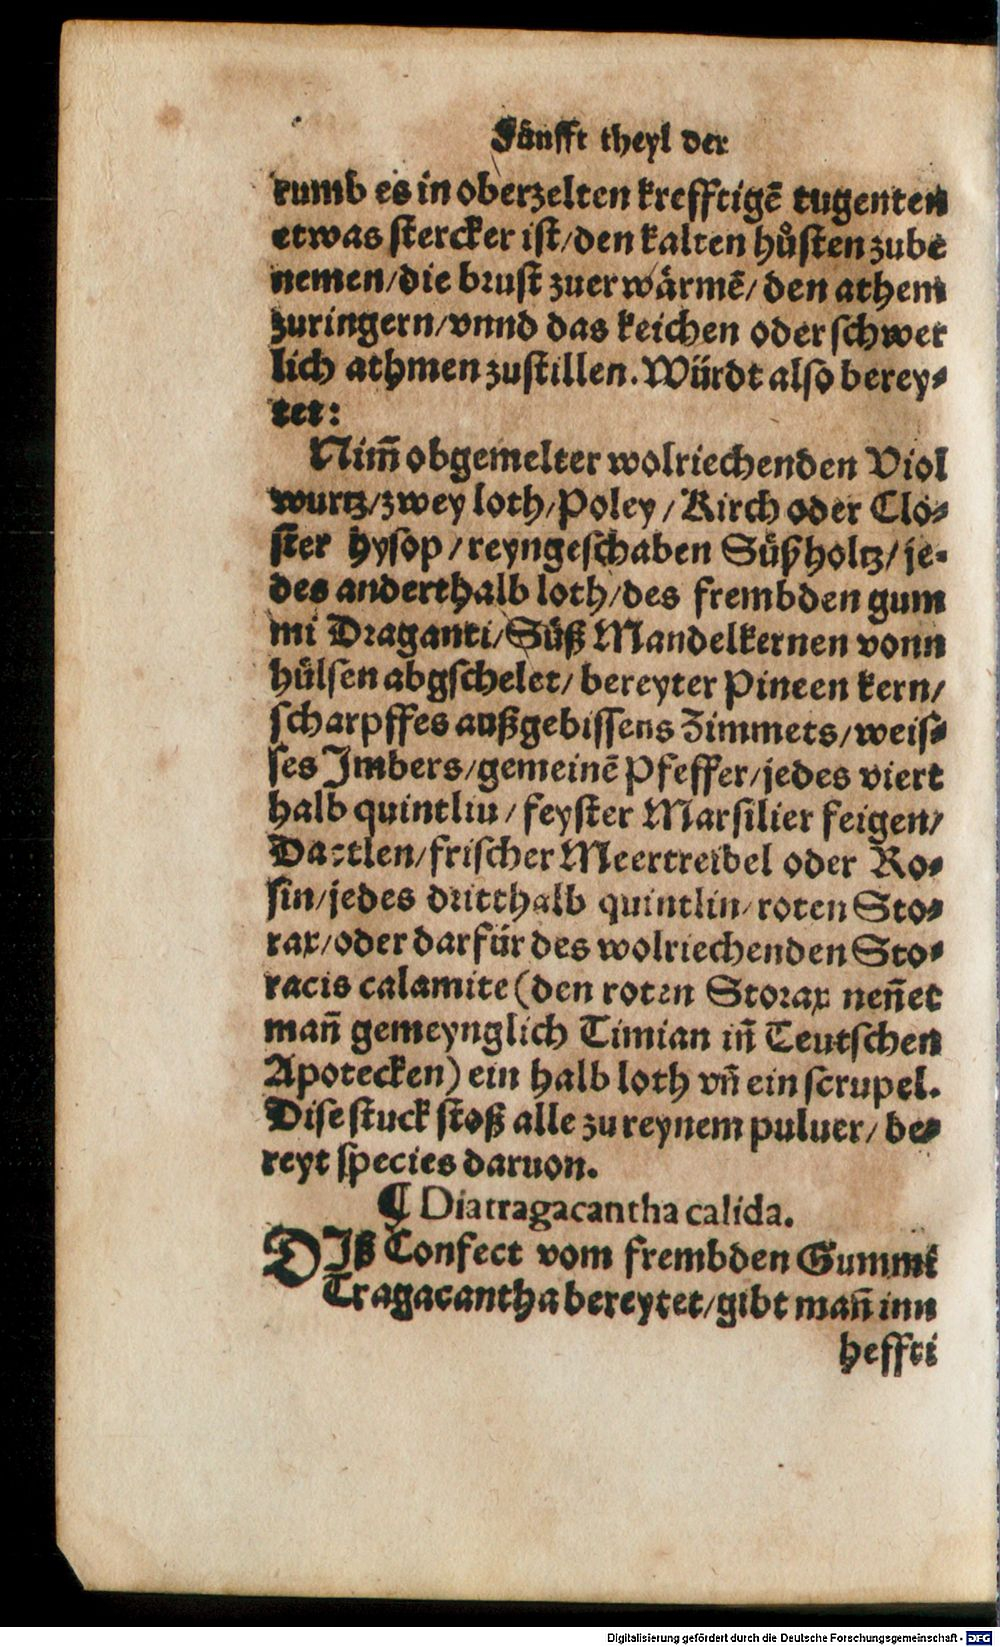 Fünfft theyl der
rumb es in oberzelten krefftigẽ tugenten
etwas stercker ist/den kalten hůsten zube
nemen/die brust zuer wärmẽ/den athem
zuringern/vnnd das keichen oder schwer
lich athmen zustillen. Würdt also berey⸗
tet:
Nim̃ obgemelter wolriechenden Viol
wurtz/zwey loth/Poley/Kirch oder Clo⸗
ster hysop/reyngeschaben Süßholtz/je⸗
des anderthalb loth/des frembden gum
mi Draganti/Süß Mandelkernen vonn
hülsen abgschelet/bereyter Pineen kern/
scharpffes außgebissens Zimmets/weis⸗
ses Imbers/gemeinẽ Pfeffer/jedes viert
halb quintlin/feyster Marsilier feigen/
Dattlen/frischer Meertreibel oder Ro⸗
sin/jedes dritthalb quintlin/roten Sto⸗
rax/oder darfür des wolriechenden Sto⸗
racis calamite (den roten Storax neñet
mañ gemeynglich Timian iñ Teutschen
Apotecken) ein halb loth vñ ein scrupel.
Dise stuck stoß alle zu reynem puluer/be⸗
reyt species daruon.
¶ Diatragacantha calida.
DIß Confect vom frembden Gummi
Tragacantha bereytet/gibt mañ inn
heffti
Digitalisierung gefördert durch die Deutsche Forschungsgemeinschaft - DFG